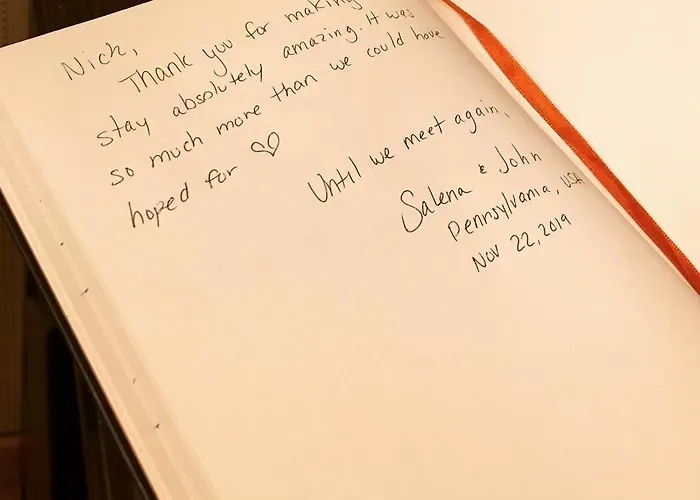 Nick,
Thank you for making
stay absolutely amazing. It was
so much more than we could have
hoped for ♡
Until we meet again,
Salena & John
Pennsylvania, USA
Nov 22, 2019